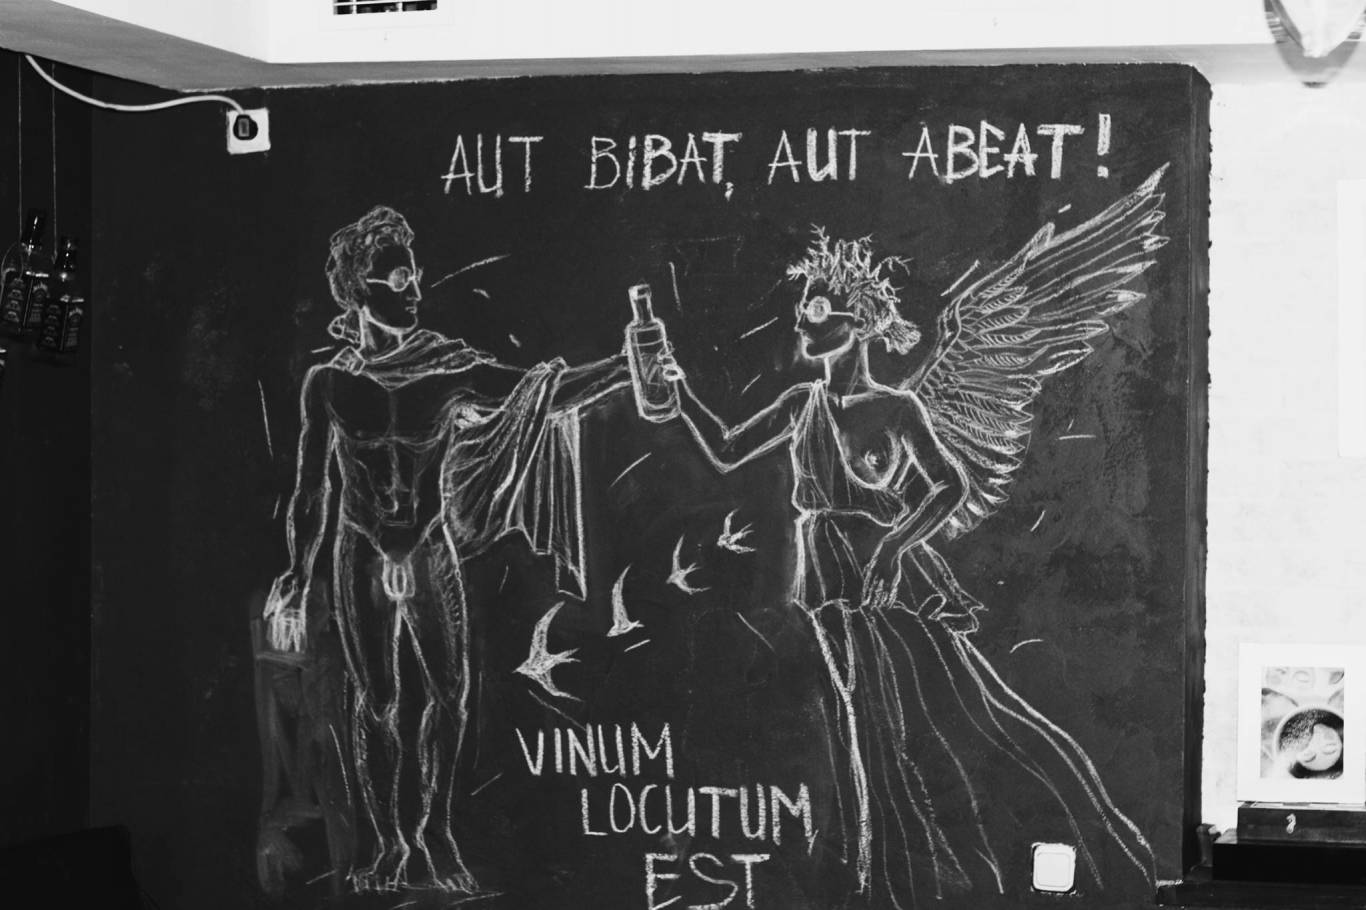 AUT BIBAT, AUT ABEAT!
VINUM
LOCUTUM,
EST